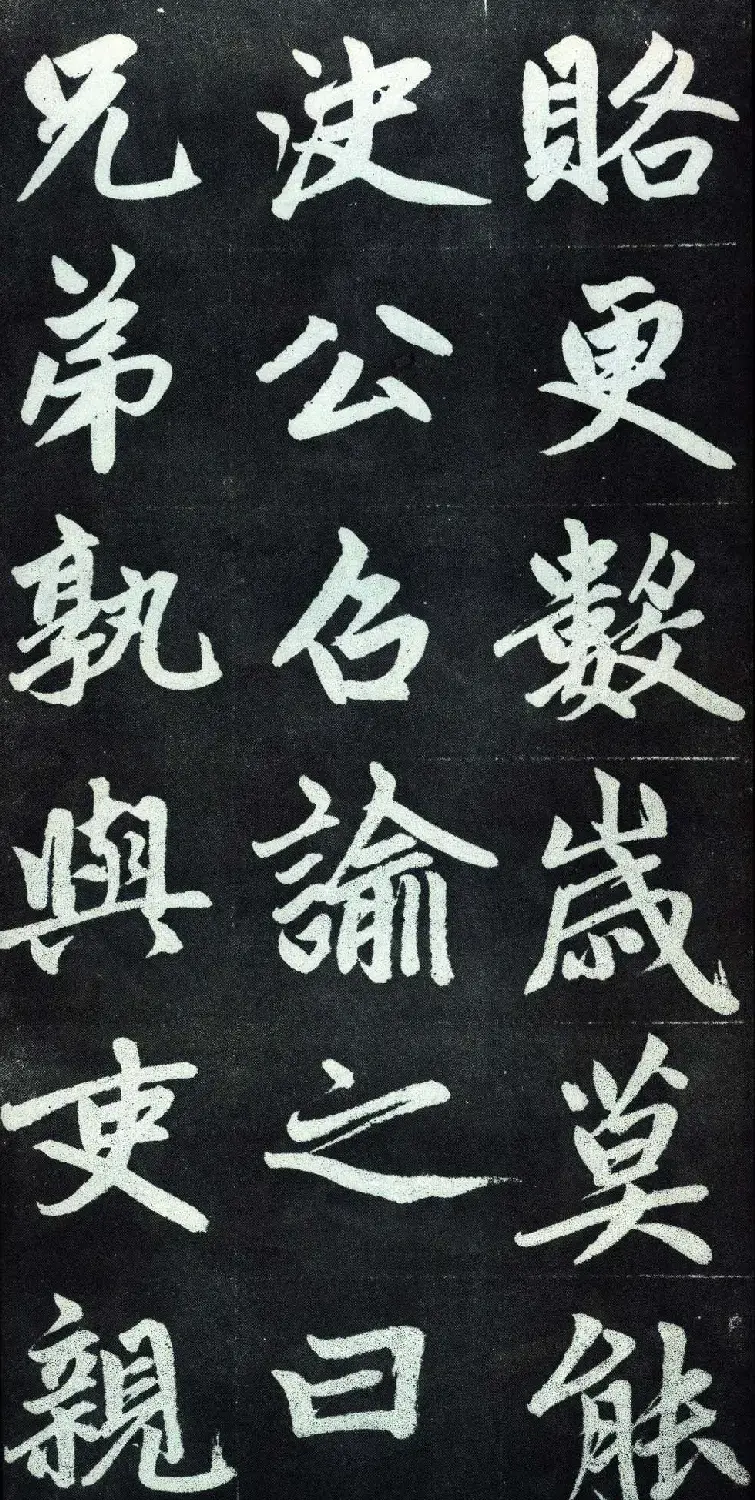 賂更數歲莫能
決公召諭之曰
兄弟孰與吏親